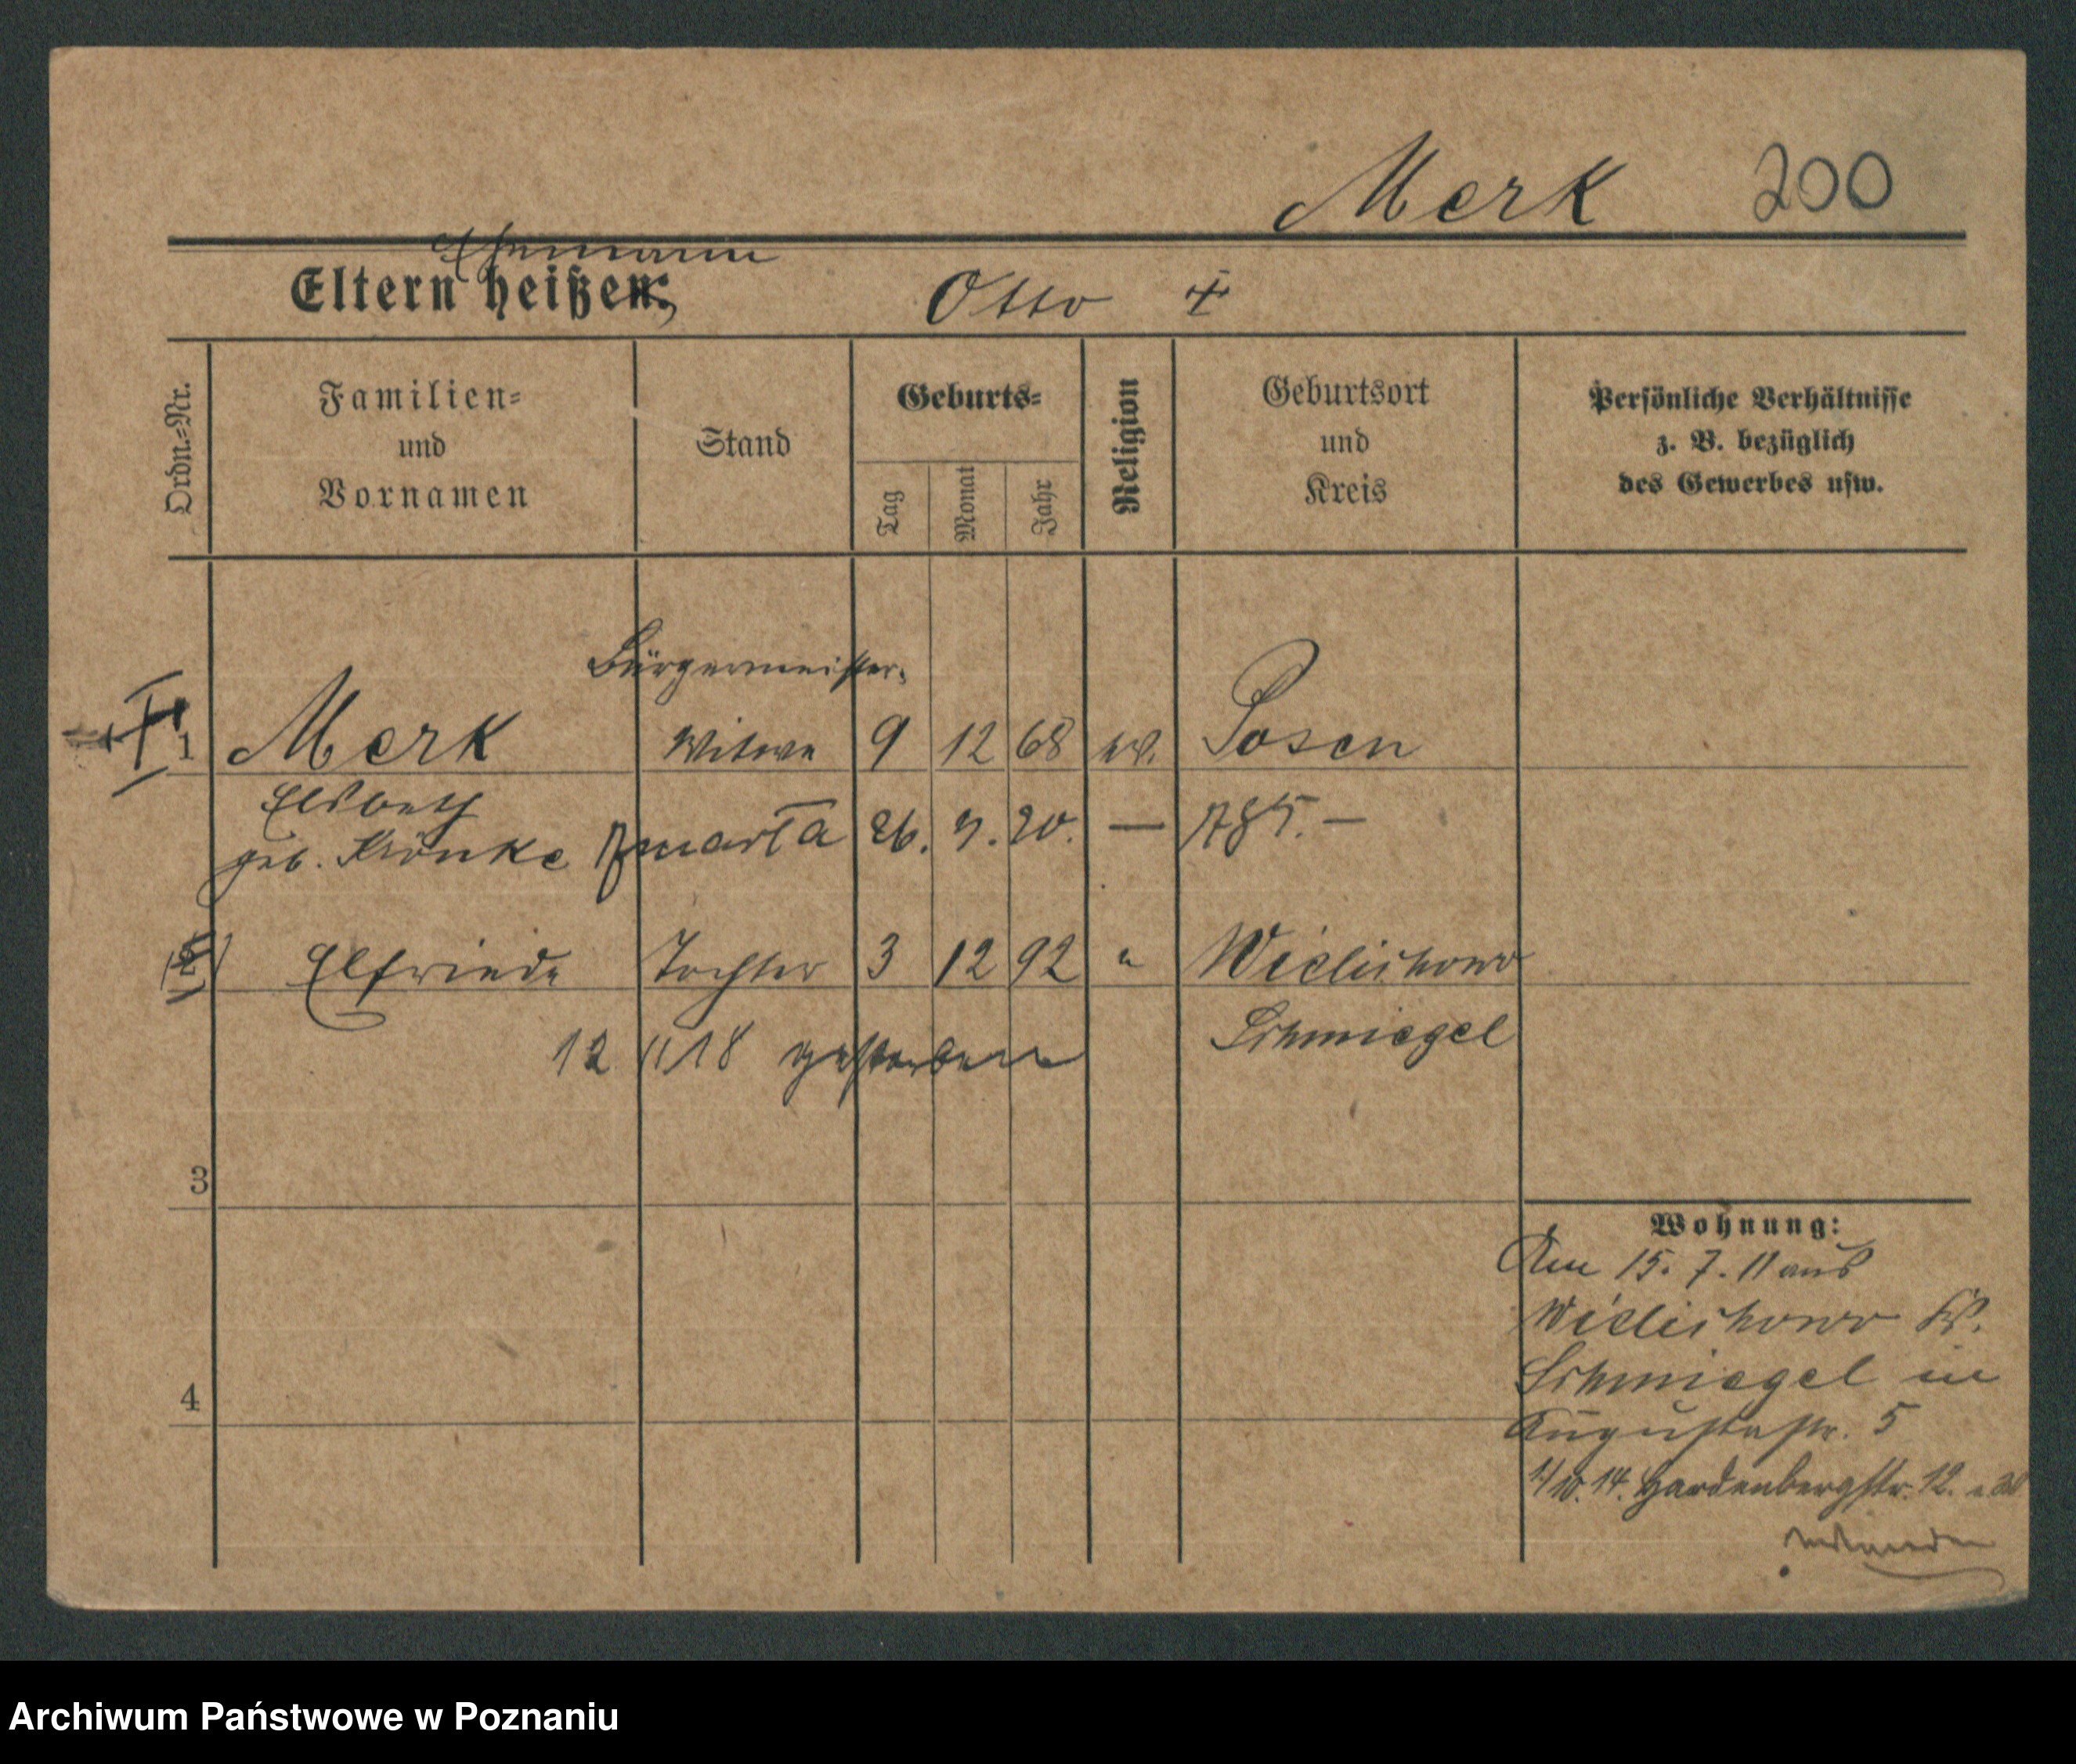 Merk 200
Ehemann
Eltern heißen:
Otto +
Ordn.-Nr.
Familien-
und
Vornamen
Stand
Geburts-
Tag
Monat
Jahr
Religion
Geburtsort
und
Kreis
Persönliche Verhältnisse
z. B. bezüglich
des Gewerbes usw.
Bürgermeister-
1 Merk Witwe 9 12 68 ev. Posen
Elsbeth
geb. Krönke zmarła 26. 9. 20. — 785. —
2 Elfriede Tochter 3 12 92 " Wielichowo
Schmiegel
12 11 18 gestorben
3
4
Wohnung:
Am 15. 7. 11 aus
Wielichowo Kr.
Schmiegel in
Augustastr. 5
1/10. 14. Hardenbergstr. 12.
Archiwum Państwowe w Poznaniu